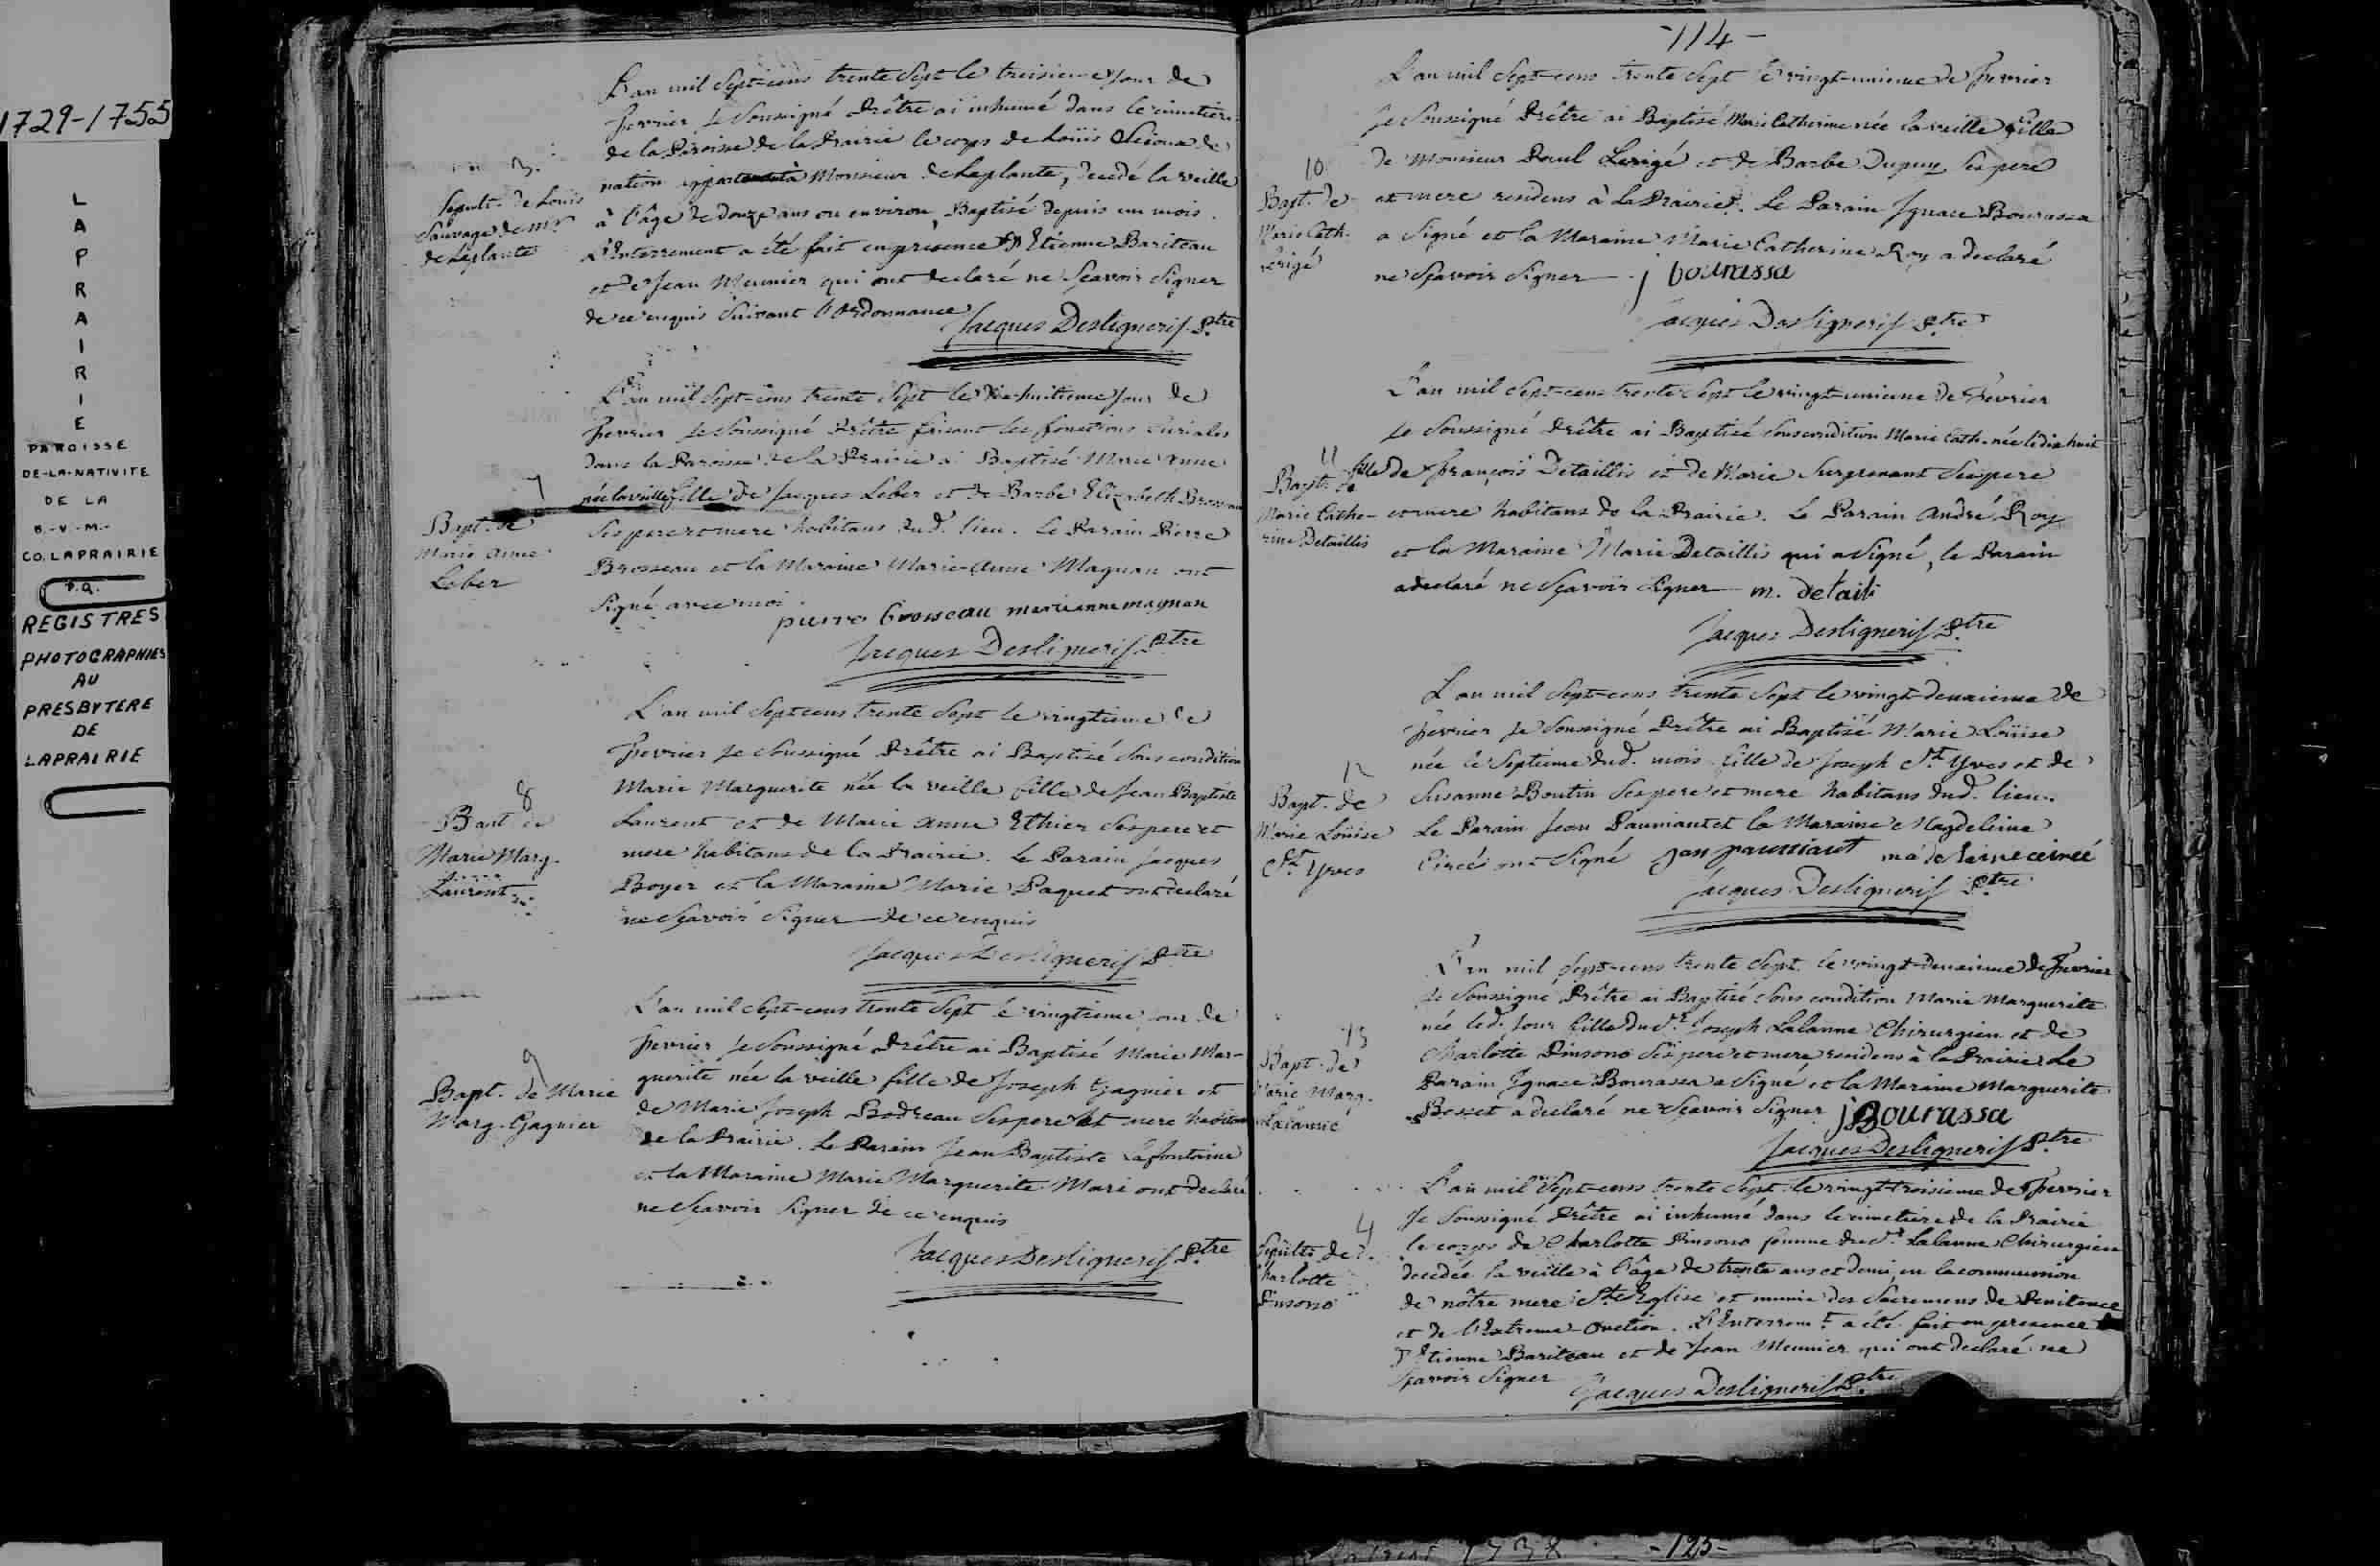 1729-1755
LAPRAIRIE
PAROISSE
DE-LA-NATIVITE
DE LA
B.-V.-M.-
CO. LAPRAIRIE
P.Q.
REGISTRES
PHOTOGRAPHIES
AU
PRESBYTERE
DE
LAPRAIRIE
3.
Sepult. de Louis
Sauvage de Mr
de Laplante
L'an mil Sept-cens trente Sept le troisieme jour de
fevrier Je Soussigné Prêtre ai inhumé dans le cimetiere
de la Paroisse de la Prairie le corps de Loüis de
nation Monsieur de Laplante, decedé la veille
à l'âge de douze ans ou environ, Baptisé depuis un mois.
L'Enterrement a été fait en présence d'Etienne Bariteau
et de Jean Meunier qui ont declaré ne Sçavoir Signer
de ce enquis Suivant l'Ordonnance
Jacques Deslignerif Ptre
7
Bapt. de
Marie Anne
Leber
L'an mil Sept-cens trente Sept le dix-huitieme jour de
fevrier Je Soussigné Prêtre faisant les fonctions Curiales
dans la Paroisse de la Prairie ai Baptisé Marie Anne
née la veille fille de Jacques Leber et de Barbe Elizabeth Brosseau
Ses pere et mere habitans dud. lieu. Le Parain Pierre
Brosseau et la Maraine Marie-Anne Magnan ont
Signé avec moi
pierre brosseau marianne magnan
Jacques Deslignerif Ptre
8
Bapt de
Marie Marg.
Laurent
L'an mil Sept cens trente Sept le vingtieme de
fevrier Je Soussigné Prêtre ai Baptisé Sous condition
Marie Marguerite née la veille fille de Jean Baptiste
Laurent et de Marie Anne Ethier Ses pere et
mere habitans de la Prairie. Le Parain Jacques
Boyer et la Maraine Marie Paquet ont declaré
ne Sçavoir Signer de ce enquis
Jacques Deslignerif Ptre
9
Bapt. de Marie
Marg. Gagnier
L'an mil Sept-cens trente Sept le vingtieme jour de
fevrier Je Soussigné Prêtre ai Baptisé Marie Mar-
guerite née la veille fille de Joseph Gagnier et
de Marie Joseph Bodreau Ses pere et mere habitans
de la Prairie. Le Parain Jean Baptiste Lafontaine
et la Maraine Marie Marguerite Mari ont declaré
ne Sçavoir Signer de ce enquis
Jacques Deslignerif Ptre
-114-
10
Bapt. de
Marie Cath.
Lerigé
L'an mil Sept-cens trente Sept le vingt-unieme de fevrier
Je Soussigné Prêtre ai Baptisé Marie Catherine née la veille fille
de Monsieur Paul Lerigé et de Barbe Dupuy Ses pere
et mere residens à La Prairie. Le Parain Ignace Bourassa
a Signé et la Maraine Marie Catherine Roy a declaré
ne Sçavoir Signer j bourassa
Jacques Deslignerif Ptre
11
Bapt. de
Marie Cathe-
rine Detaillis
L'an mil Sept-cens trente Sept le vingt-unieme de fevrier
Je Soussigné Prêtre ai Baptisé Sous condition Marie Cath. née le dix huit
fille de François Detaillis et de Marie Surprenant Ses pere
et mere habitans de la Prairie. Le Parain André Roy
et la Maraine Marie Detaillis qui a Signé, le Parain
a declaré ne Sçavoir Signer m. detaili
Jacques Deslignerif Ptre
12
Bapt. de
Marie Loüise
St. Yves
L'an mil Sept-cens trente Sept le vingt-deuxieme de
fevrier Je Soussigné Prêtre ai Baptisé Marie Loüise
née le Septieme dud. mois fille de Joseph St. Yves et de
Susanne Boutin Ses pere et mere habitans dud. lieu.
Le Parain Jean Paumiant et la Maraine Magdeleine
Circé ont Signé jan paumiant madelaine circé
Jacques Deslignerif Ptre
13
Bapt. de
Marie Marg.
Lalanne
L'an mil Sept-cens trente Sept le vingt-deuxieme de fevrier
Je Soussigné Prêtre ai Baptisé Sous condition Marie Marguerite
née led. jour fille du Sr. Joseph Lalanne Chirurgien et de
Charlotte Pinsono Ses pere et mere residens à la Prairie Le
Parain Ignace Bourassa a Signé et la Maraine Marguerite
Besset a declaré ne Sçavoir Signer j Bourassa
Jacques Deslignerif Ptre
4
Sepult. de
Charlotte
Pinsono
L'an mil Sept-cens trente Sept le vingt-troisieme de fevrier
Je Soussigné Prêtre ai inhumé dans le cimetiere de la Prairie
le corps de Charlotte Pinsono femme du Sr. Lalanne Chirurgien
decedée la veille à l'âge de trente ans et demi, en la communion
de nôtre mere Ste Eglise et munie des Sacremens de Penitence
et de l'Extreme-Onction. L'Enterremt. a été fait en presence
d'Etienne Bariteau et de Jean Meunier qui ont declaré ne
Sçavoir Signer
Jacques Deslignerif Ptre
-125-